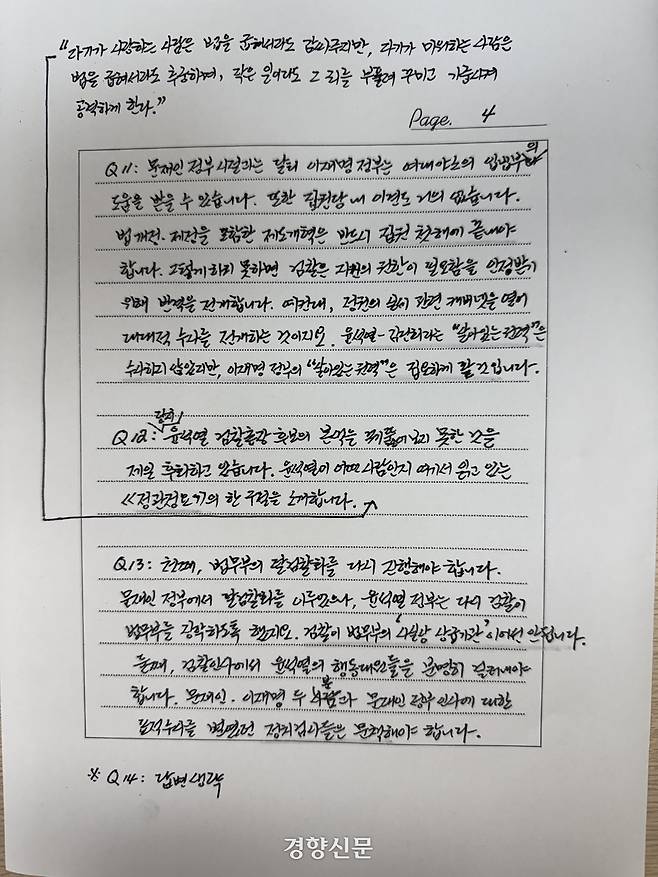 "자기가 사랑하는 사람은 법을 굽혀서라도 감싸주지만, 자기가 미워하는 사람은
법을 굽혀서라도 추궁하며, 작은 일이라도 그 죄를 부풀려 꾸미고 가중시켜
공격하게 한다."
Page. 4
Q11: 문재인 정부 시절과는 달리 이재명 정부는 여대야소의 입법부의
도움을 받을 수 있습니다. 또한 집권당 내 이견도 거의 없습니다.
법 개정·제정을 포함한 제도개혁은 반드시 집권 첫 해에 끝내야
합니다. 그렇게 하지 못하면 검찰은 자신의 권한이 필요함을 인정받기
위해 반격을 전개합니다. 예컨대, 정권의 실이 관련 캐비넷을 열어
대대적 수사를 전개하는 것이지요. 윤석열-김건희라는 "살아있는 권력"은
수사하지 않았지만, 이재명 정부의 "살아있는 권력"은 집요하게 팔 것입니다.
Q12: 당시 윤석열 검찰총장 후보의 본역을 꿰뚫어보지 못한 것을
제일 후회하고 있습니다. 윤석열이 어떤 사람인지 여기서 읽고 있는
≪정관정요≫의 한 구절을 소개합니다.
Q13: 첫째, 법무부의 탈검찰화를 다시 진행해야 합니다.
문재인 정부에서 탈검찰화를 이루었으나, 윤석열 정부는 다시 검찰이
법무부를 장악하도록 했지요. 검찰이 법무부의 '사실상 상급기관'이어선 안됩니다.
둘째, 검찰인사에서 윤석열의 행동대원들을 분명히 걸러내야
합니다. 문재인·이재명 두 분과 문재인 정부 인사에 대한
표적수사를 벌였던 정치검사들은 문책해야 합니다.
※ Q14: 답변 생략
경향신문